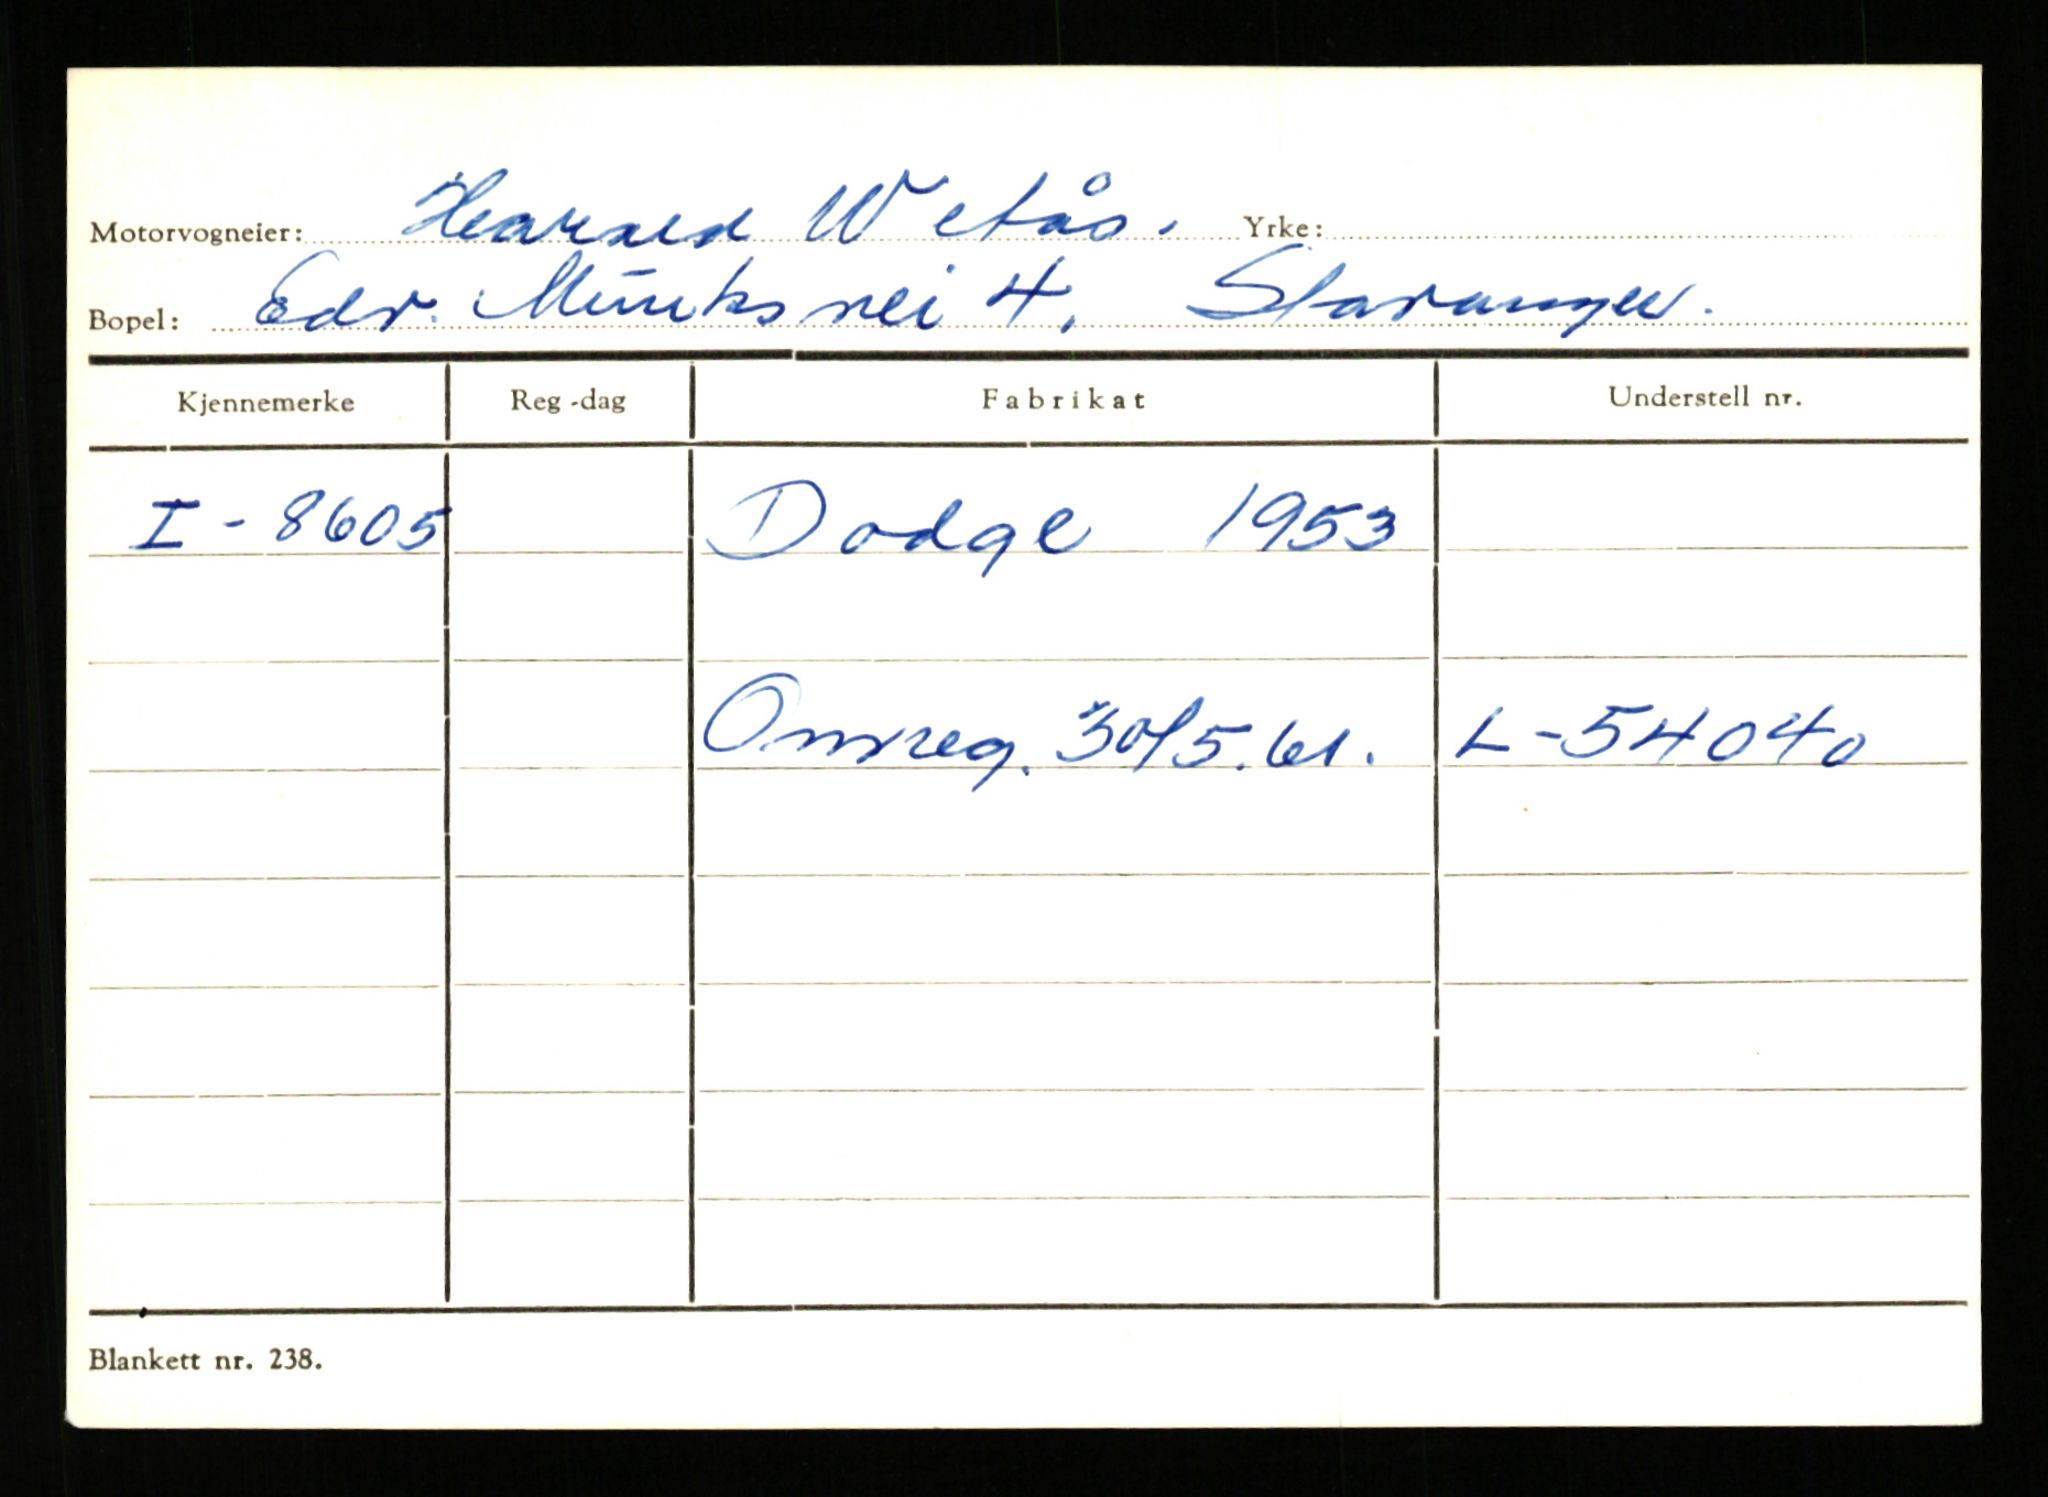 Motorvogneier: Harald Wetås. Yrke:
Bopel: Edv. Munks vei 4, Stavanger.
Kjennemerke Reg-dag Fabrikat Understell nr.
I-8605 Dodge 1953
Omreg. 30/5.61. L-54040
Blankett nr. 238.